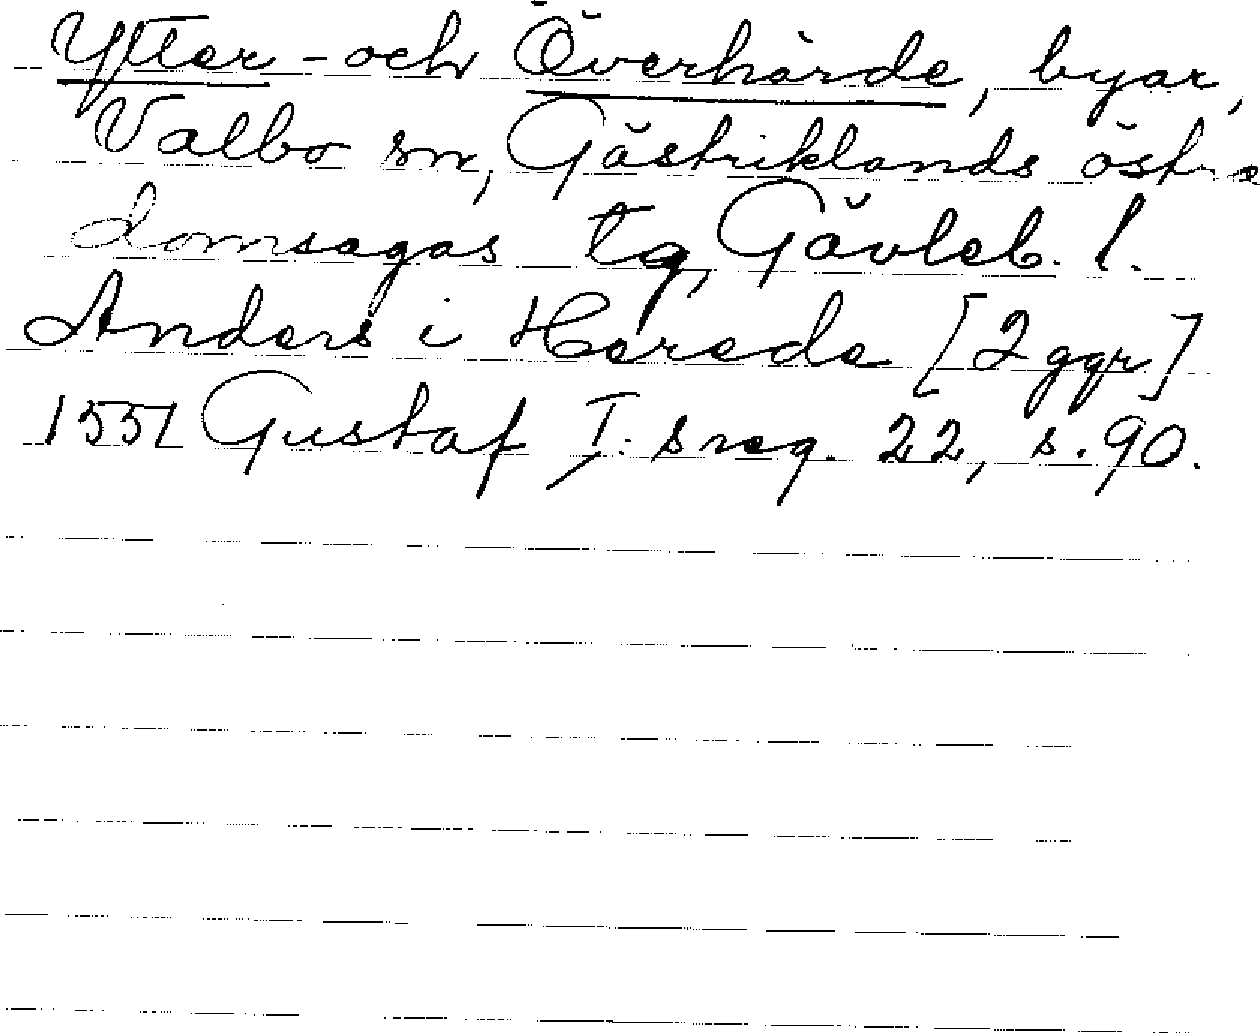 Ytter- och Överhärde, byar,
Valbo sn, Gästriklands östra
domsagas tg, Gävleb. l.
Anders i Herede [2 ggr]
1551 Gustaf I:s reg. 22, s. 90.